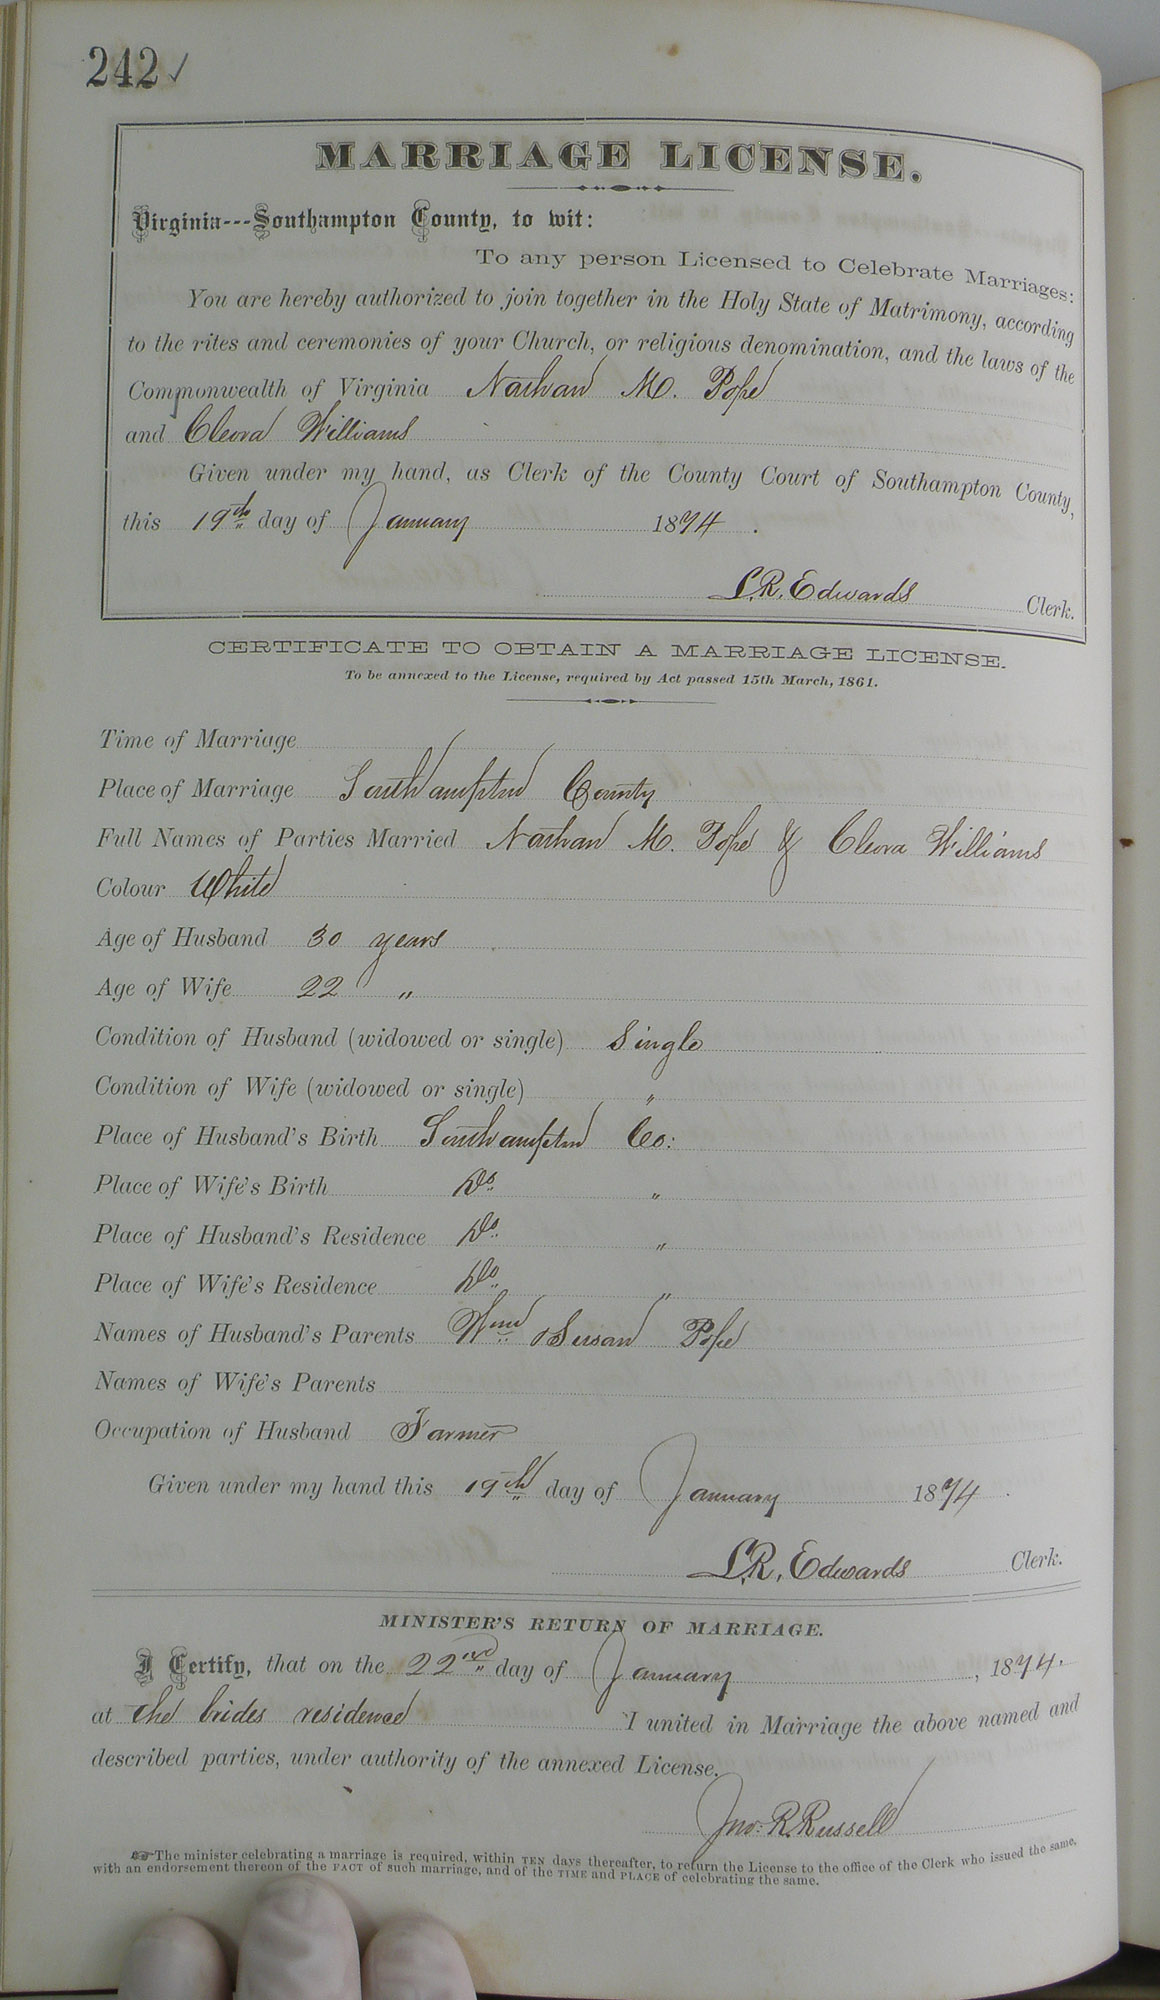 242 ✓
MARRIAGE LICENSE.
Virginia---Southampton County, to wit:
To any person Licensed to Celebrate Marriages:
You are hereby authorized to join together in the Holy State of Matrimony, according
to the rites and ceremonies of your Church, or religious denomination, and the laws of the
Commonwealth of Virginia Nathan M. Pope
and Cleora Williams
Given under my hand, as Clerk of the County Court of Southampton County,
this 19th day of January 1874.
L.R. Edwards Clerk.
CERTIFICATE TO OBTAIN A MARRIAGE LICENSE.
To be annexed to the License, required by Act passed 15th March, 1861.
Time of Marriage
Place of Marriage Southampton County
Full Names of Parties Married Nathan M. Pope & Cleora Williams
Colour White
Age of Husband 30 years
Age of Wife 22 "
Condition of Husband (widowed or single) Single
Condition of Wife (widowed or single) "
Place of Husband's Birth Southampton Co:
Place of Wife's Birth Do. "
Place of Husband's Residence Do. "
Place of Wife's Residence Do. "
Names of Husband's Parents Wm Susan Pope
Names of Wife's Parents
Occupation of Husband Farmer
Given under my hand this 19th day of January 1874.
L.R. Edwards Clerk.
MINISTER'S RETURN OF MARRIAGE.
I Certify, that on the 22nd day of January, 1874.
at the brides residence I united in Marriage the above named and
described parties, under authority of the annexed License.
Jno. R. Russell
☞The minister celebrating a marriage is required, within TEN days thereafter, to return the License to the office of the Clerk who issued the same,
with an endorsement thereon of the FACT of such marriage, and of the TIME and PLACE of celebrating the same.